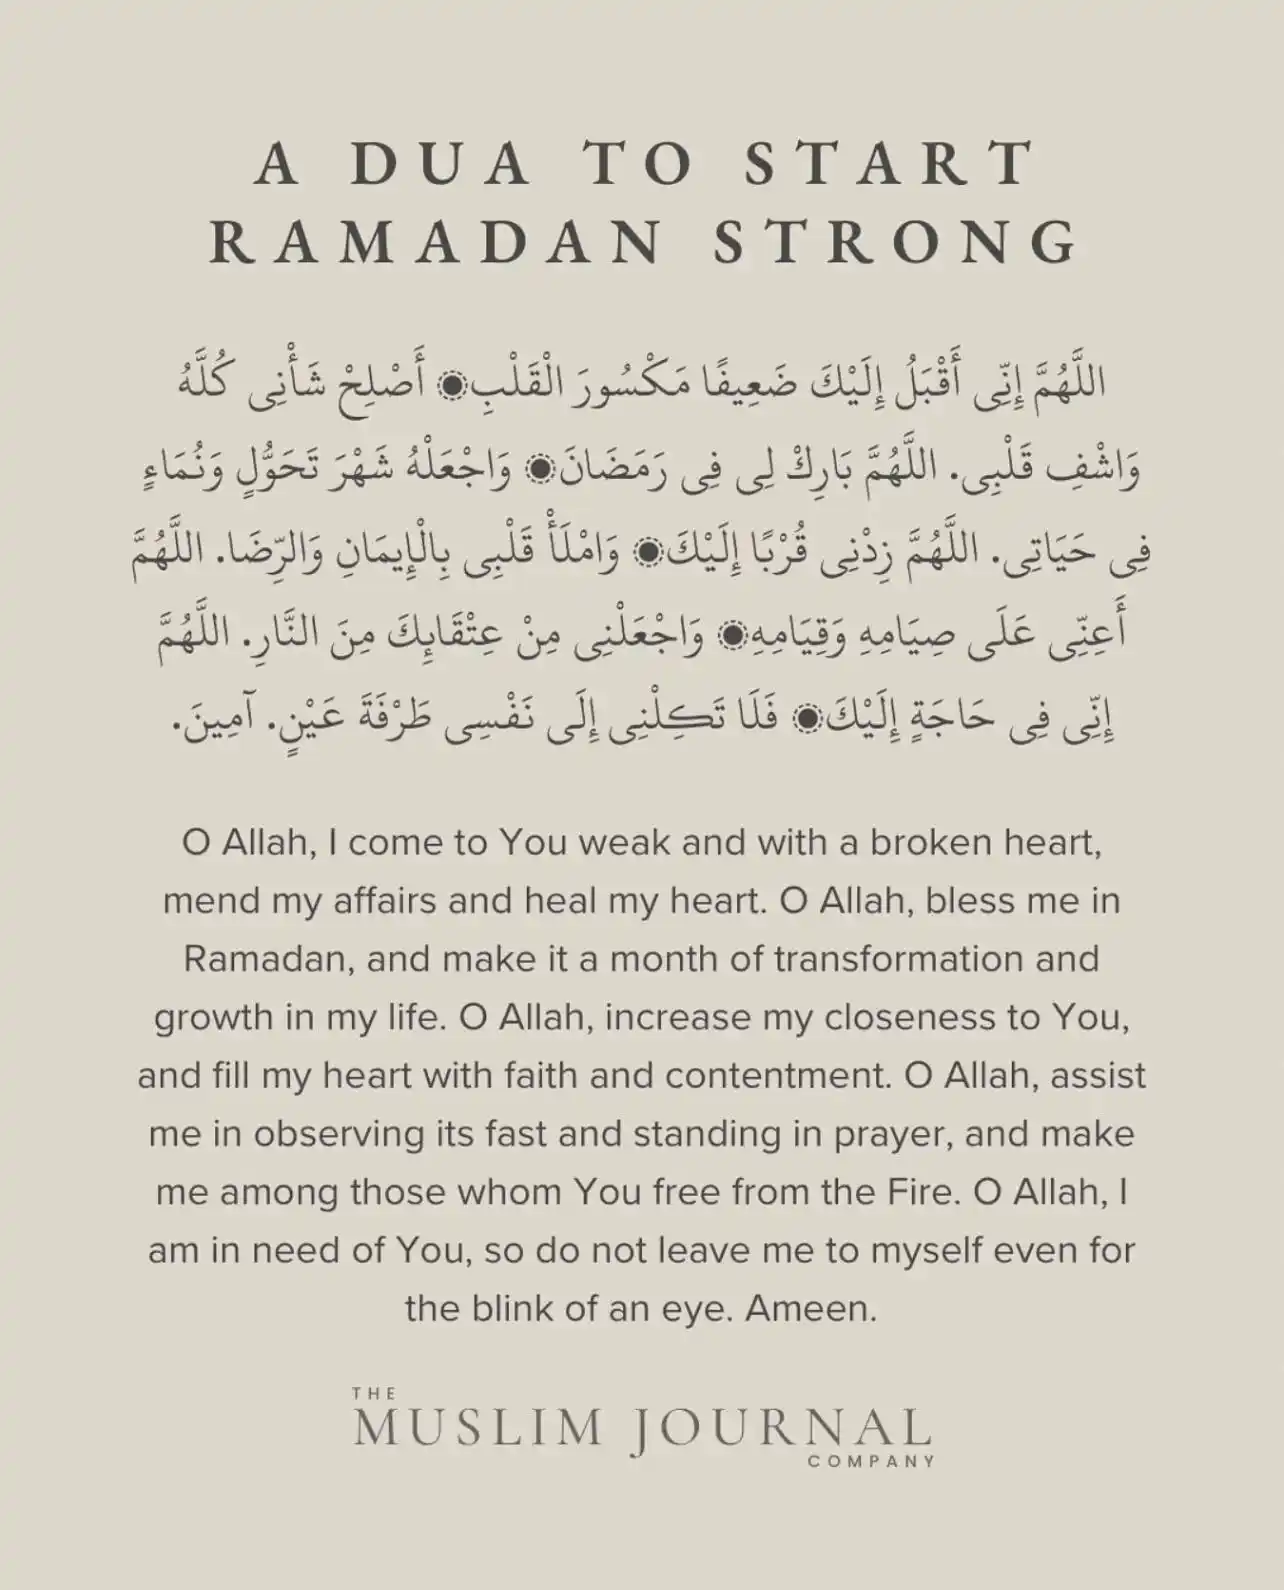 A DUA TO START
RAMADAN STRONG
اللَّهُمَّ إِنِّى أَقْبَلُ إِلَيْكَ ضَعِيفًا مَكْسُورَ الْقَلْبِ۝ أَصْلِحْ شَأْنِى كُلَّهُ
وَاشْفِ قَلْبِى. اللَّهُمَّ بَارِكْ لِى فِى رَمَضَانَ۝ وَاجْعَلْهُ شَهْرَ تَحَوُّلٍ وَنُمَاءٍ
فِى حَيَاتِى. اللَّهُمَّ زِدْنِى قُرْبًا إِلَيْكَ۝ وَامْلَأْ قَلْبِى بِالْإِيمَانِ وَالرِّضَا. اللَّهُمَّ
أَعِنِّى عَلَى صِيَامِهِ وَقِيَامِهِ۝ وَاجْعَلْنِى مِنْ عِتْقَايِكَ مِنَ النَّارِ. اللَّهُمَّ
إِنِّى فِى حَاجَةٍ إِلَيْكَ۝ فَلَا تَكِلْنِى إِلَى نَفْسِى طَرْفَةَ عَيْنٍ. آمِينَ.
O Allah, I come to You weak and with a broken heart,
mend my affairs and heal my heart. O Allah, bless me in
Ramadan, and make it a month of transformation and
growth in my life. O Allah, increase my closeness to You,
and fill my heart with faith and contentment. O Allah, assist
me in observing its fast and standing in prayer, and make
me among those whom You free from the Fire. O Allah, I
am in need of You, so do not leave me to myself even for
the blink of an eye. Ameen.
THE
MUSLIM JOURNAL
COMPANY